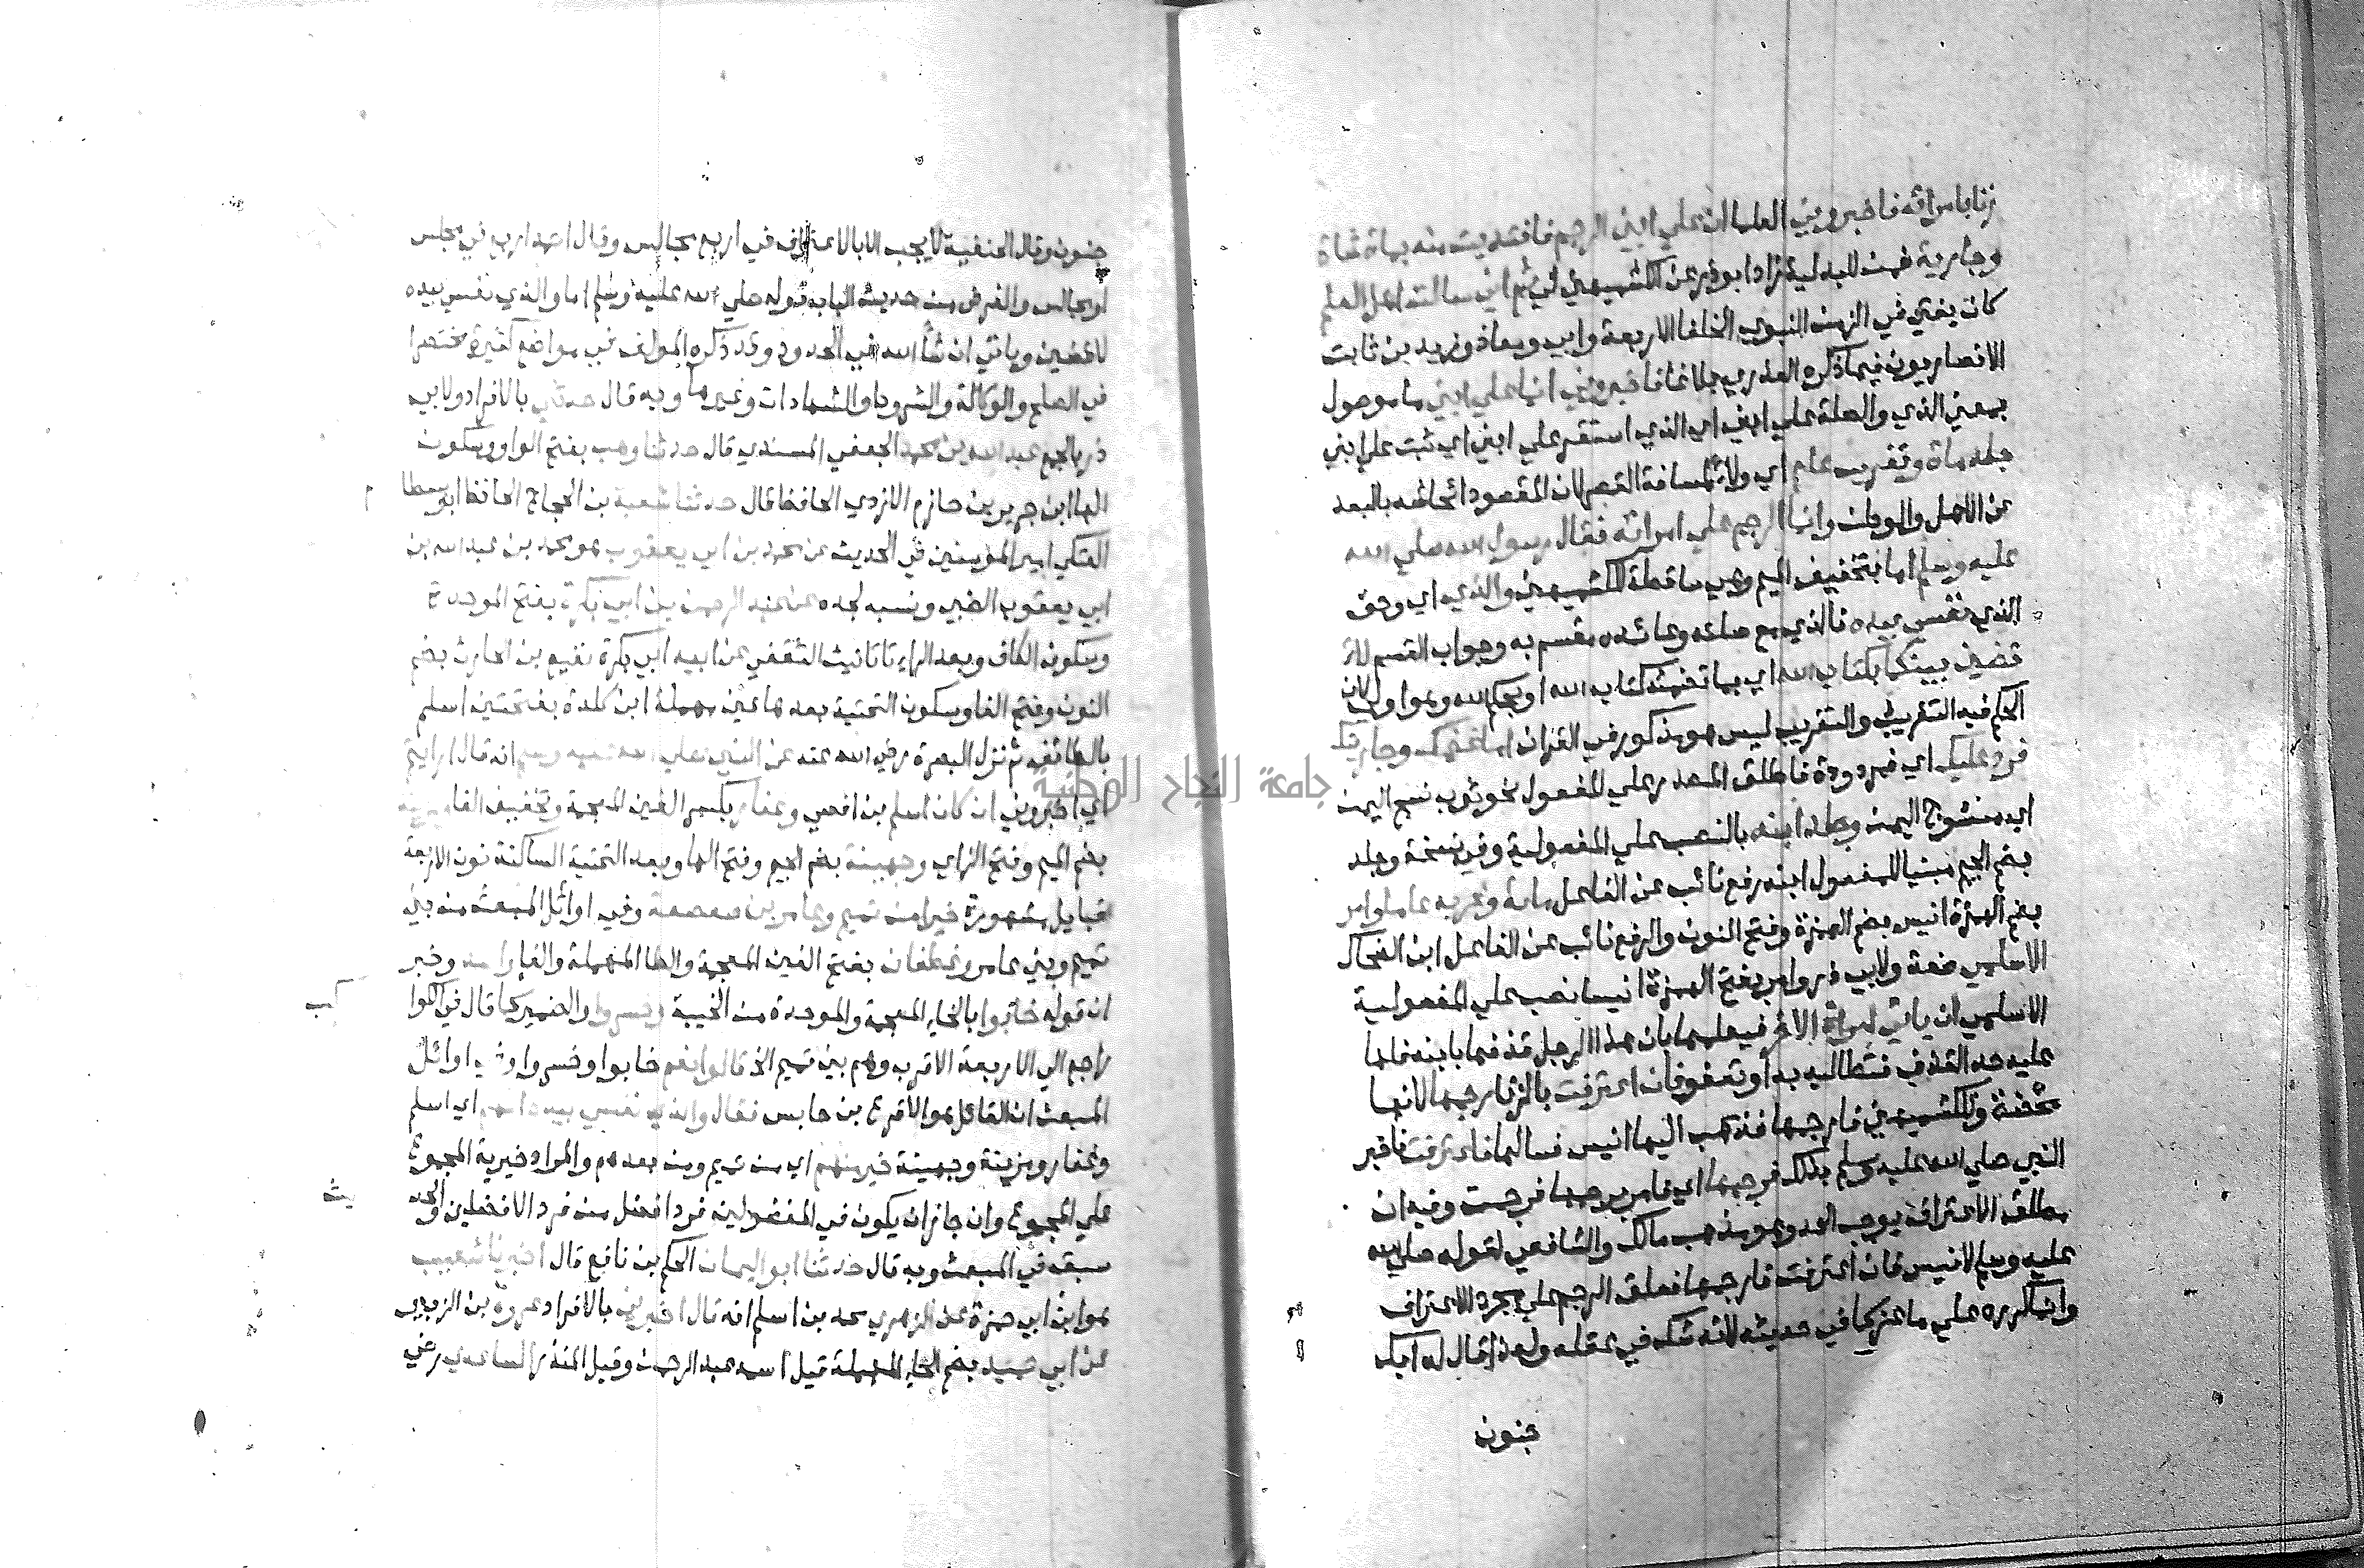 زنا بامراته فاخبروني العلما ان علي ابني الرجم فافتديت منه بماة شاة
وجارية ثمت للبه ليه زاد ابوذر عن الكشميهني لي ثم اني سالت اهل العلم
كان يفتي في الزمن النبوي الخلفا الاربعة وابي ومعاذ وزيد بن ثابت
الانصاريون فيما ذكره العذري بلاغا فاخبروني انما علي ابني ما موصول
بمعني الذي والصلة علي ابني اي الذي استقر علي ابني اي ثبت علي ابني
جلد ماة وتغريب عام اي ولاء لمسافة القصر لان المقصود ائحاشه بالبعد
عن الاهل والوطن وانما الرجم علي امراته فقال رسول الله صلي الله
عليه وسلم اما بتخفيف الميم وهي ساقطة للكشميهني والذي اي وحق
الذي نفسي بيده فالذي مع صلته وعائده مقسم به وجواب القسم لا
قضين بينكما بكتاب الله اي بما تضمنه كتاب الله او بحكم الله وهو اولي لان
الحكم فيه التغريب والتغريب ليس هو مذكور في القران اما غنمك وجاريتك
فرد عليك اي فمردودة فاطلق المصدر علي المفعول نحو ثوب نسج اليمن
اي منسوج اليمن وجلد ابنه بالنصب علي المفعولية وفي نسخة وجلد
بضم الجيم مبنيا للمفعول ابنه رفع نائب عن الفاعل ماية وغربه عاما وامر
بضم الهمزة انيس بضم الهمزة وفتح النون والرفع نائب عن الفاعل ابن الضحاك
الاسلمي صفة ولابي ذر وامر بفتح الهمزة انيسا نصب علي المفعولية
الاسلمي ان ياتي امراة الاخر فيعلمها بان هذا الرجل قذفها بابنه فلها
عليه حد القذف فتطالبه به او تعفو فان اعترفت بالزنا رجمها لانها
محصنة وللكشميهني فارجمها فذهب اليها انيس فسالها فاعترفت فاخبر
النبي صلي الله عليه وسلم بذلك فرجمها اي فامر برجمها فرجمت وفيه ان
مطلق الاعتراف يوجب الحد وهو مذهب مالك والشافعي لقوله صلي الله
عليه وسلم لانيس فان اعترفت فارجمها فعلق الرجم علي مجرد الاعتراف
وانما كرره علي ماعز كما في حديثه لانه شك في عقله ولهذا قال له ابك
جنون
جنون وقال الحنفية لا يجب الا بالاعتراف في اربع مجالس وقال احمد اربع في مجلس
او مجالس والغرض من حديث الباب قوله صلي الله عليه وسلم اما والذي نفسي بيده
لاقضين وياتي ان شأ الله في الحدود وقد ذكره المولف في مواضع كثيرة مختصرا
في الصلح والوكالة والشروط والشهادات وغيرها وبه قال حدثني بالافراد ولابي
ذر بالجمع عبد الله بن محمد الجعفي المسندي قال حدثنا وهب بفتح الواو وسكون
الها ابن جرير بن حازم الازدي الحافظ قال حدثنا شعبة بن الحجاج الحافظ ابو بسطا
م
العتكي امير المومنين في الحديث عن محمد بن ابي يعقوب هو محمد بن عبد الله بن
ابي يعقوب الضبي ونسبه لجده عن عبد الرحمن بن ابي بكرة بفتح الموحدة
وسكون الكاف وبعد الراء تا تانيث الثقفي عن ابيه ابي بكرة نفيع بن الحارث بضم
النون وفتح الفا وسكون التحتية بعدها عين مهملة ابن كلدة بفتحتين اسلم
بالطائف ثم نزل البصرة رضي الله عنه عن النبي صلي الله عليه وسلم انه قال ارايتم
اي اخبروني ان كان اسلم بن افصي وغفار بكسر الغين المعجمة وتخفيف الفا ومزينة
بضم الميم وفتح الزاي وجهينة بضم الجيم وفتح الها وبعد التحتية الساكنة نون الاربعة
قبايل مشهورة خيرا من تميم وعامر بن صعصعة وفي اوائل المبعث من بني
تميم وبني عامر وغطفان بفتح الغين المعجمة والطا المهملة والفا واسد وخبر
ان قوله خابوا بالخاء المعجمة والموحدة من الخيبة وخسروا والضمير كما قال في الكوا
كب
راجع الي الاربعة الاقرب وهم بني تميم الخ قالوا نعم خابوا وخسروا وفي اوائل
المبعث ان القائل هو الاقرع بن حابس فقال والذي نفسي بيده انهم اي اسلم
وغفار ومزينة وجهينة خير منهم اي من تميم ومن بعدهم والمراد خيرية المجموع
علي المجموع وان جاز ان يكون في المفضولين فرد افضل من فرد الافضلين والحد
يث
سبق في المبعث وبه قال حدثنا ابو اليمان الحكم بن نافع قال اخبرنا شعيب
هو ابن ابي حمزة عن الزهري محمد بن اسلم انه قال اخبرني بالافراد عروة بن الزبير
عن ابي حميد بضم الحاء المهملة قيل اسمه عبد الرحمن وقيل المنذر الساعدي رضي
جامعة النجاح الوطنية